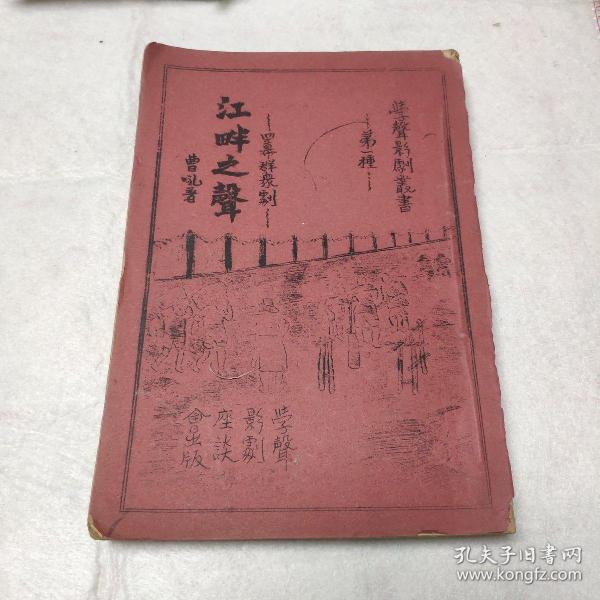 學聲影劇叢書
第一種
江畔之聲
四幕群衆劇
曹吼著
學聲
影劇
座談
會出版
孔夫子旧书网
www.kongfz.com